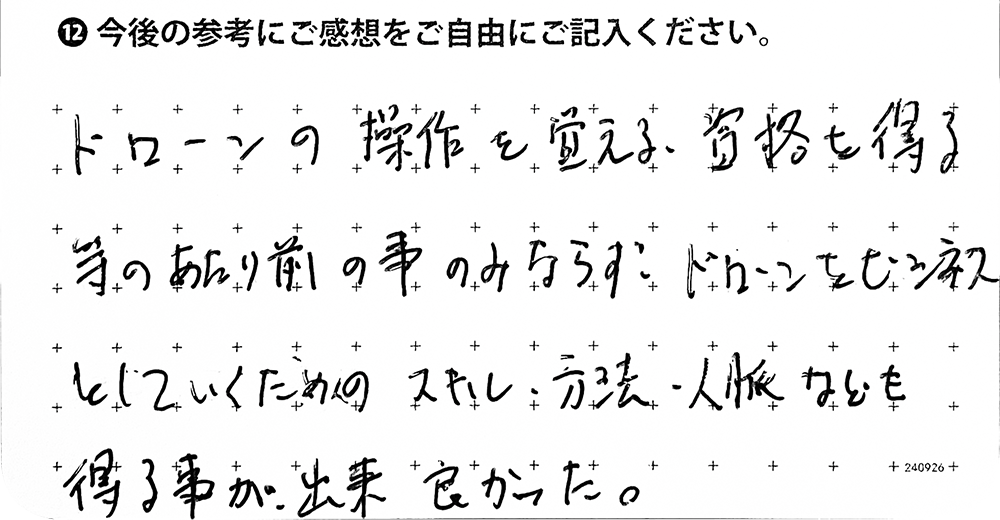 ⓬ 今後の参考にご感想をご自由にご記入ください。
ドローンの操作を覚える、資格を得る
等のあたり前の事のみならず、ドローンをビジネス
としていくためのスキル・方法・人脈なども
得る事が、出来 良かった。
240926